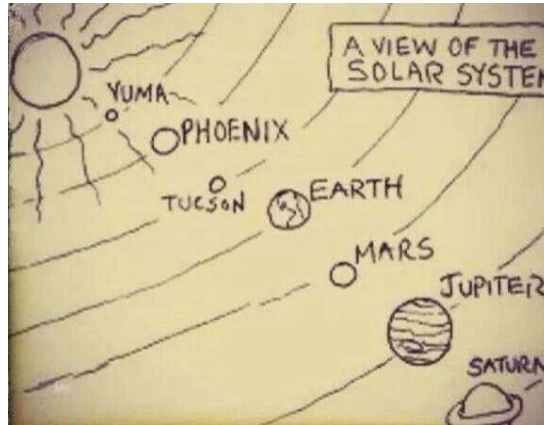 A VIEW OF THE
SOLAR SYSTEM
YUMA
PHOENIX
TUCSON
EARTH
MARS
JUPITER
SATURN